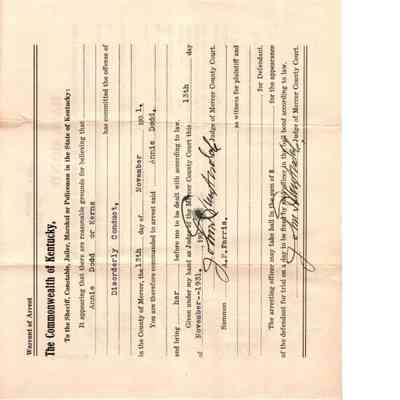 Warrant of Arrest
The Commonwealth of Kentucky,
To the Sheriff, Constable, Jailer, Marshal or Policeman in the State of Kentucky:
It appearing that there are reasonable grounds for believing that
Annie Dodd or Kerns
has committed the offense of
Disorderly Conduct,
in the County of Mercer, the 13th day of November 1931,
You are therefore commanded to arrest said Annie Dodd.
and bring her before me to be dealt with according to law.
Given under my hand as Judge of the Mercer County Court this 13th day
of November--1931. 19
Judge of Mercer County Court.
Summon A.F. Farris. as witness for plaintiff and
for Defendant.
The arresting officer may take bail in the sum of $ for the appearance
of the defendant for trial on a day to be fixed by said officer in the bail bond according to law.
Judge of Mercer County Court.